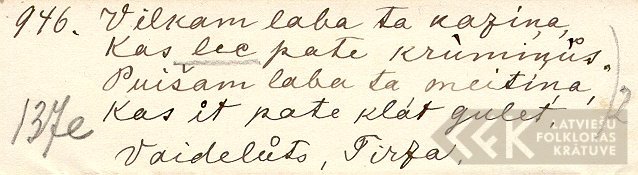 946. Vilkam laba ta kaziņa,
Kas lec pate krūmiņûs.
Puišam laba ta meitiņa,
Kas ît pate klât gulêt.
137e
12
Vaidelûts, Tirza.
LATVIEŠU
FOLKLORAS
KRĀTUVE